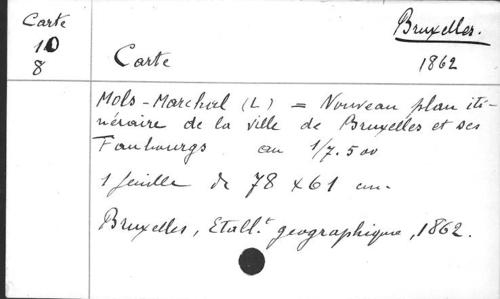 Carte
10
8
Bruxelles.
Carte
1862
Mols-Marchal (L) = Nouveau plan iti-
néraire de la ville de Bruxelles et ses
Faubourgs au 1/7.500
1 feuille de 78 x 61 cm.
Bruxelles, Etabl.t geographique, 1862.